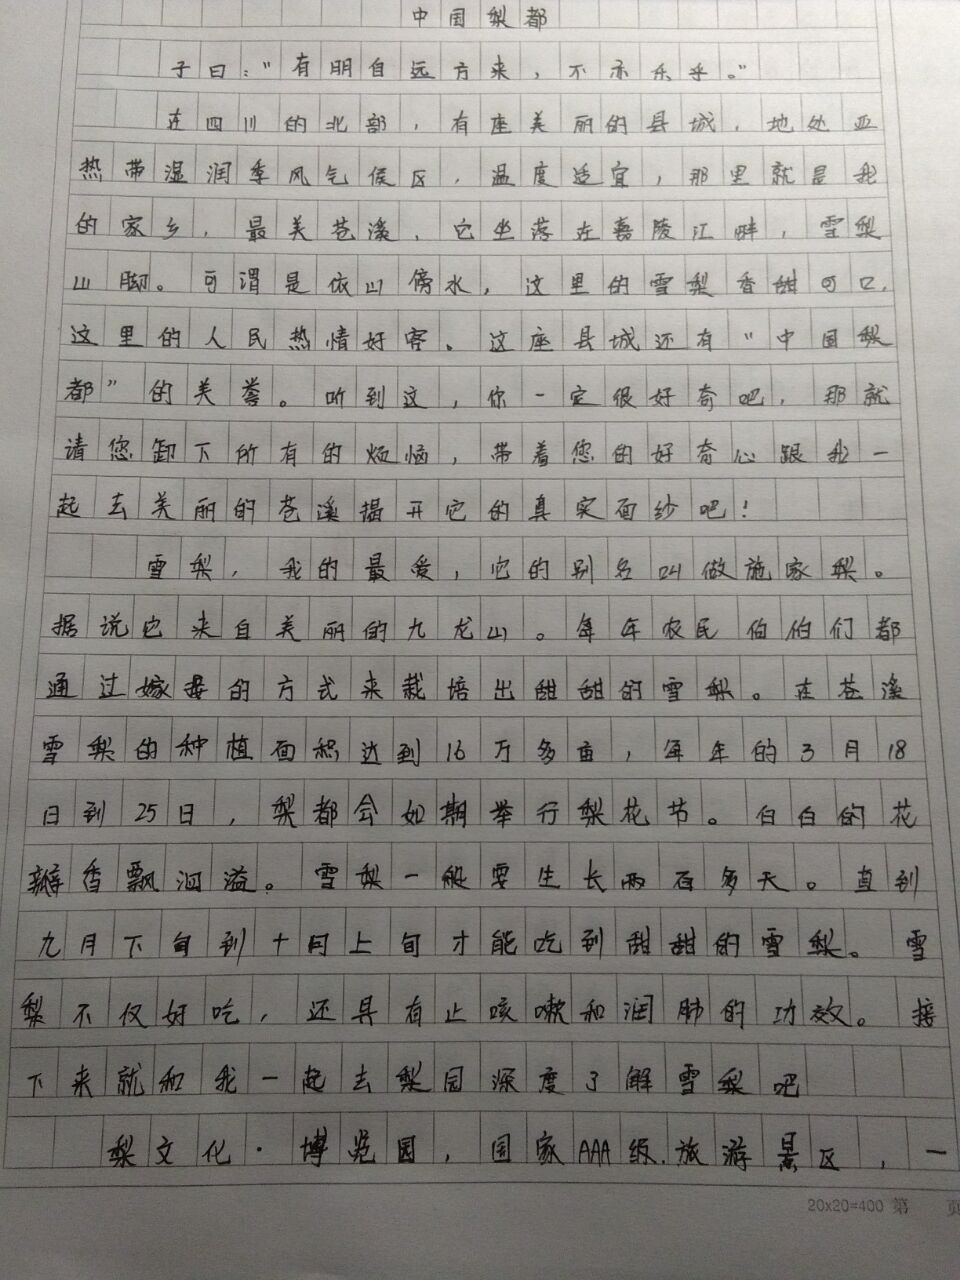 中国梨都
子曰："有朋自远方来，不亦乐乎。"
在四川的北部，有座美丽的县城，地处亚
热带湿润季风气侯区，温度适宜，那里就是我
的家乡，最美苍溪，它坐落在嘉陵江畔，雪梨
山脚。可谓是依山傍水，这里的雪梨香甜可口，
这里的人民热情好客。这座县城还有"中国梨
都"的美誉。听到这，你一定很好奇吧，那就
请您卸下所有的烦恼，带着您的好奇心跟我一
起去美丽的苍溪揭开它的真实面纱吧！
雪梨，我的最爱，它的别名叫做施家梨。
据说它来自美丽的九龙山。每年农民伯伯们都
通过嫁接的方式来栽培出甜甜的雪梨。在苍溪
雪梨的种植面积达到16万多亩，每年的3月18
日到25日，梨都会如期举行梨花节。白白的花
瓣香飘洄溢。雪梨一般要生长两百多天。直到
九月下旬到十月上旬才能吃到甜甜的雪梨。雪
梨不仅好吃，还具有止咳嗽和润肺的功效。接
下来就和我一起去梨园深度了解雪梨吧
梨文化·博览园，国家AAA级旅游景区，一
20x20=400 第 页